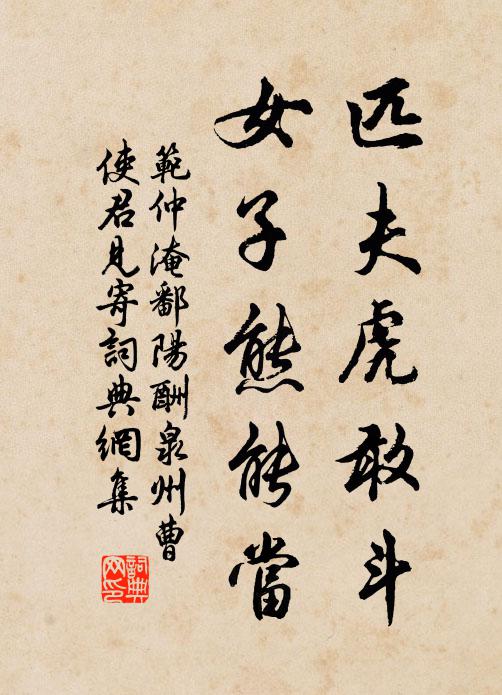 匹夫虎敢斗
女子熊能當
範仲淹鄱陽酬泉州曹
使君見寄詞典網集
詞典
网印